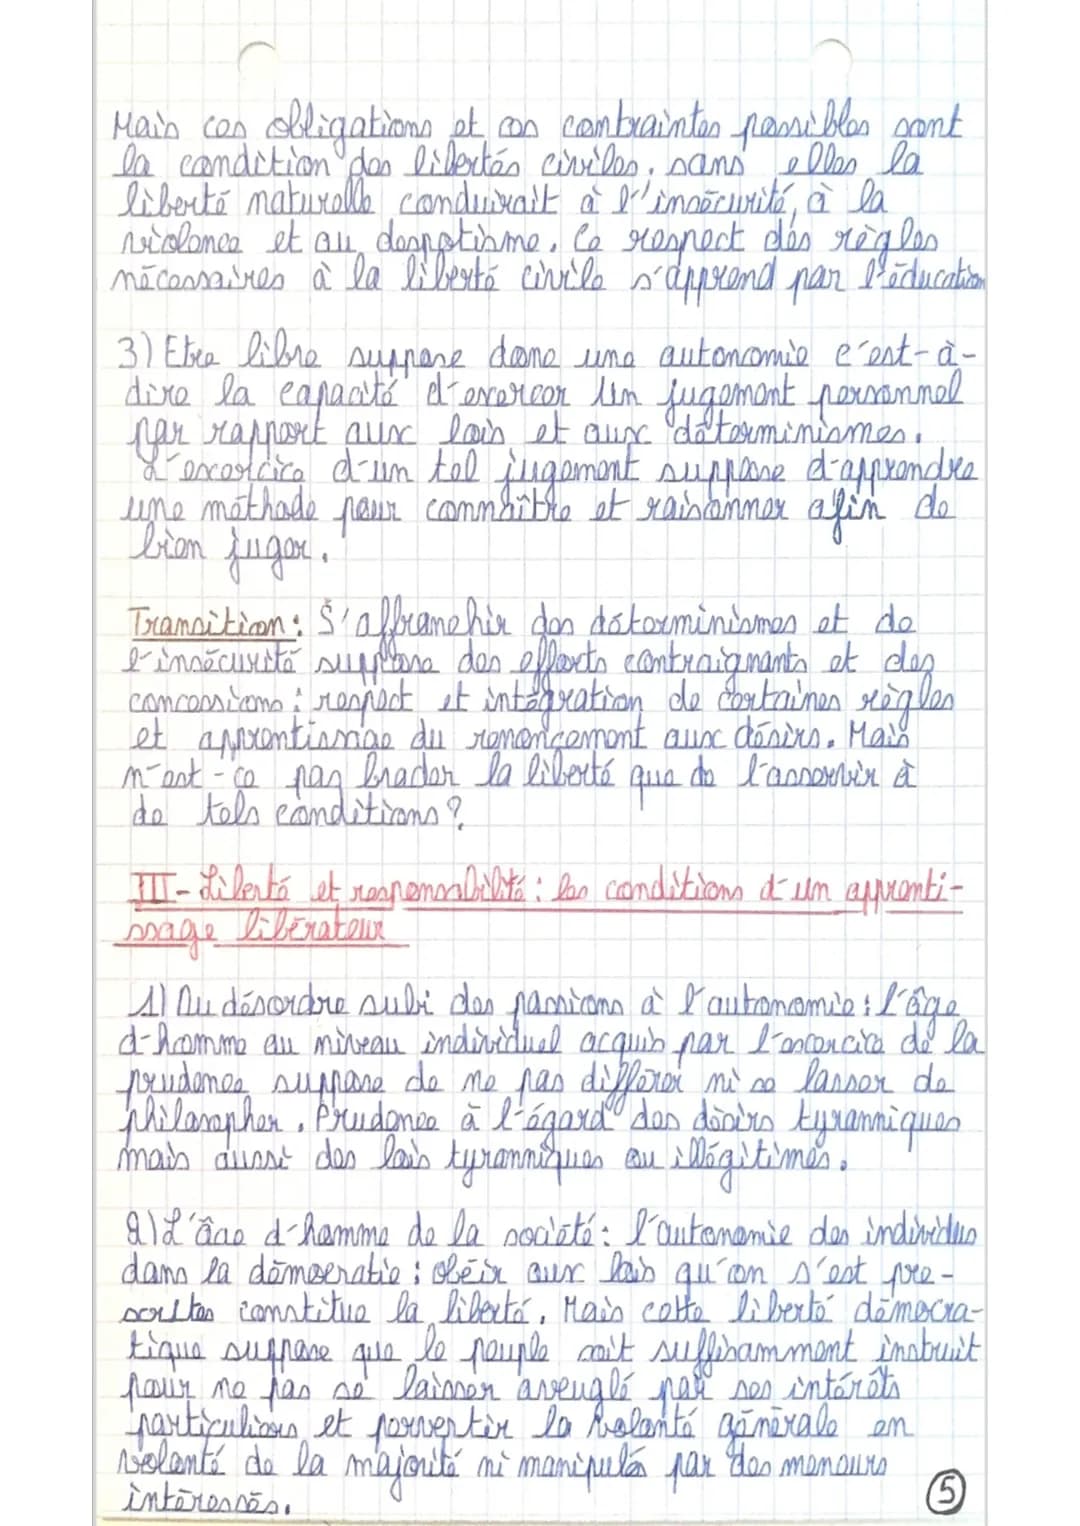 Mais ces obligations et ces contraintes possibles sont
la condition des libertés civiles, sans elles la
liberté naturelle conduirait à l'insécurité, à la
violence et au despotisme. Ce respect des règles
nécessaires à la liberté civile s'apprend par l'éducation
3) Etre libre suppose donc une autonomie c'est-à-
dire la capacité d'exercer un jugement personnel
par rapport aux lois et aux déterminismes.
L'exercice d'un tel jugement suppose d'apprendre
une méthode pour connaître et raisonner afin de
bien juger.
Transition: S'affranchir des déterminismes et de
l'insécurité suppose des efforts contraignants et des
concessions : respect et intégration de certaines règles
et apprentissage du renoncement aux désirs. Mais
n'est-ce pas brader la liberté que de l'asservir à
de tels conditions ?
III- Liberté et responsabilité : les conditions d'un apprenti-
ssage libérateur
1) Du désordre subi des passions à l'autonomie : l'âge
d'homme au niveau individuel acquis par l'exercice de la
prudence suppose de ne pas différer ni se lasser de
philosopher. Prudence à l'égard des désirs tyranniques
mais aussi des lois tyranniques ou illégitimes.
2) L'âge d'homme de la société : l'autonomie des individus
dans la démocratie : obéir aux lois qu'on s'est pre-
scrites constitue la liberté. Mais cette liberté démocra-
tique suppose que le peuple soit suffisamment instruit
pour ne pas se laisser aveuglé par ses intérêts
particuliers et pervertir la volonté générale en
volonté de la majorité ni manipulés par des meneurs
intéressés.
5